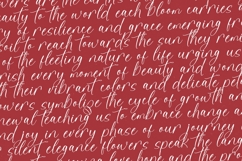 beauty to the world each bloom carries
of resilience and grace emerging fr
soil to reach towards the sun they remi
of the fleeting nature of life urging us
rish every moment of beauty and wond
th their vibrant colors and delicate pet
owers symbolize the cycle of growth a
newal teaching us to embrace change
nd joy in every phase of our journey
silent elegance flowers speak the lang
love hope and